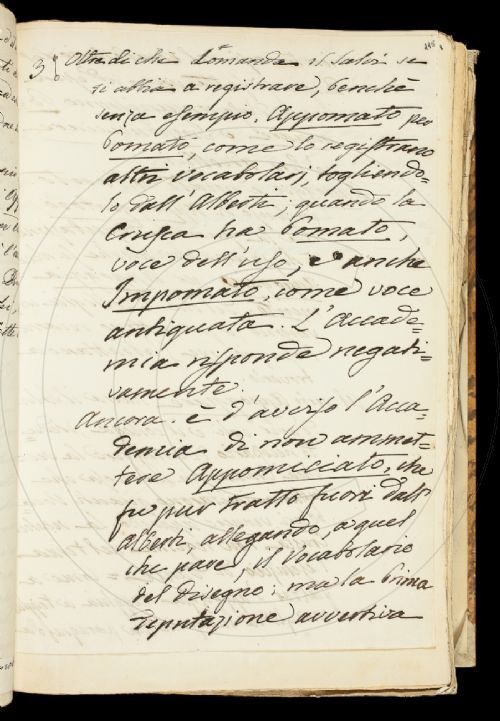 3° Oltre di che domanda il Salvi se
si abbia a registrare, benchè
senza esempio, Appomato per
Pomato, come lo registrano
altri vocabolarj, togliendo-
lo dall'Alberti; quando la
Crusca ha Pomato,
voce dell'uso, e anche
Impomato, come voce
antiquata. L'Accade-
mia risponde negati-
vamente.
Ancora è d'avviso l'Acca-
demia di non ammet-
tere Appomiciato, che
fu pur tratto fuori dall'
Alberti, allegando, a quel
che pare, il Vocabolario
del disegno: ma la prima
Deputazione avvertiva